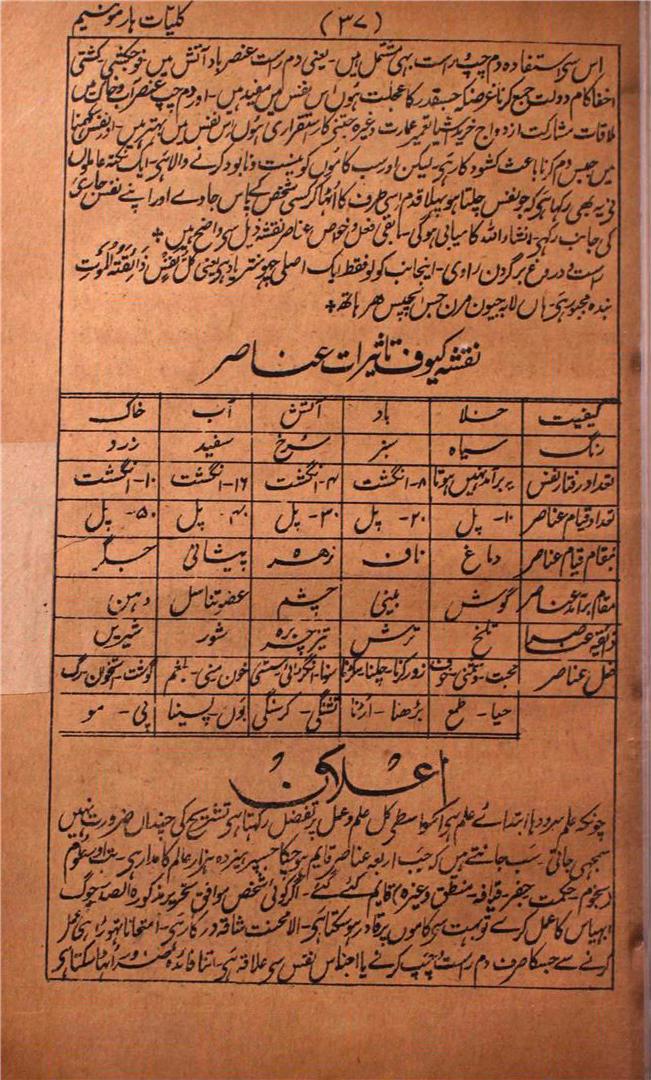 (۳۷) کلیات ہارمونیم
اس سی استفادہ دم چپ راست بھی مشتمل ہیں۔ یعنی دم راست عنصر باد آتش میں فوجکشی۔ کشتی
اخفا کام دولت جمع کرنا غرضیکہ جسقدر کار عجلت ہوں اس نفس میں مفید ہیں۔ اور دم چپ عنصر آب و خاک میں
ملاقات مشارکت ازدواج خرید اشیا تعمیر عمارت وغیرہ جتنی کار استقراری ہوں اس نفس میں بہتر ہیں۔ اور نفس
میں حبس دم کرنا باعث کشود کار ہی۔ لیکن اور سب کاموں کو نیست و نابود کرنے والا ہی۔ ایک نکتہ عاملاں
نی یہ بھی رکہا ہی کہ جو نفس چلتا ہو پہلا قدم اسی طرف کا اُٹہا کر کسی شخص کے پاس جاوے اور اپنے نفس جاری
کی جانب رکہی۔ انشاراللہ کامیابی ہوگی۔ باقی فعل و خواص عناصر نقشہ ذیل سی واضح ہیں
راست و دروغ بر گردن راوی۔ اینجانب کو تو فقط ایک اصلی چیز یاد ہی یعنی کُلُّ نَفْسٍ ذَائِقَةُ الْمَوْتِ
بندہ مجبور ہی۔ ہاں لابہ جیون مرن جس اپجس ہر ہاتھ
نقشہ کیوف تاثیرات عناصر
کیفیت خلا باد آتش آب خاک
رنگ سیاہ سبز سُرخ سفید زرد
تعداد رفتار نفس برآمد نہیں ہوتا ۸۔ انگشت ۴۔ انگشت ۱۶۔ انگشت ۱۰۔ انگشت
تعداد قیام عناصر ۱۰۔ پل ۲۰۔ پل ۳۰۔ پل ۴۰۔ پل ۵۰۔ پل
مقام قیام عناصر دماغ ناف زہرہ پیشانی جگر
مقام برآمد عناصر گوش بینی چشم عضو تناسل دہن
ذائقہ عناصر تلخ ترش تیز چرپرہ شور شیریں
فعل عناصر محبت۔ دشمنی۔ خوف زور کرنا۔ چلنا۔ سونا۔ انگڑائی۔ سستی خون۔ منی۔ بلغم گوشت۔ استخوان۔ رگ
حیا۔ طمع بڑھنا۔ اڑنا تشنگی۔ گرسنگی بول۔ پسینا پی۔ مو
اعلان
چونکہ علم سرود ہا ابتدائے علم ہی اسکو واسطی کل علم و عمل پر تفضل رکہتا ہی تشریح کی چنداں ضرورت نہیں
سمجہی جاتی۔ سب جانتے ہیں کہ جب اربعہ عناصر قایم ہو چکا جسپر ہیزدہ ہزار عالم کا مدار ہی۔ علوم
نجوم۔ حکمت جفر۔ قیافہ۔ منطق وغیرہ قایم کئے گئے۔ اگر کوئی شخص موافق تحریر مذکورہ الصدر جوگ
ابہیاس کا عمل کرے تو بہت سی کاموں پر قادر ہو سکتا ہی۔ الا محنت شاقہ درکار ہی۔ امتحاناً تہوڑا ہی عمل
کرنے سے جسکا صرف دم راست چپ کرنے یا اجناس نفس سی علاقہ ہی۔ اتنا فائدہ ضرور اُٹہا سکتا ہی